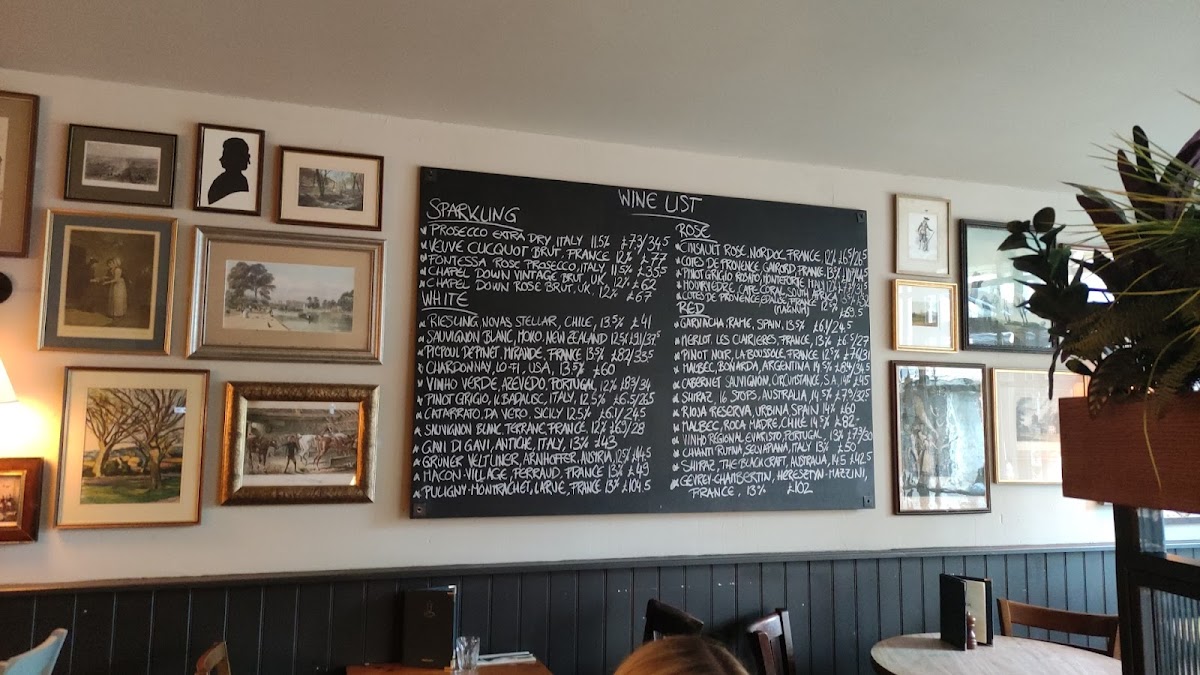 WINE LIST
SPARKLING
PROSECCO EXTRA DRY, ITALY 11.5% £7.3/34.5
VEUVE CLICQUOT BRUT, FRANCE 12% £77
FONTESSA ROSE PROSECCO, ITALY, 11.5% £35.5
CHAPEL DOWN VINTAGE BRUT, UK, 12% £62
CHAPEL DOWN ROSE BRUT, UK, 12% £67
WHITE
RIESLING, NOVAS STELLAR, CHILE, 13.5% £41
SAUVIGNON BLANC, MOKO, NEW ZEALAND 12.5%
PICPOUL DE PINET, MIRANDE, FRANCE 13% £8.2/35.5
CHARDONNAY, LO-FI, USA, 13.5% £60
VINHO VERDE, AZEVEDO, PORTUGAL, 12%
PINOT GRIGIO, IL BADALISC, ITALY, 12.5%
CATARRATO, DA VERO, SICILY 12.5% £6.1/24.5
SAUVIGNON BLANC, TERRANE, FRANCE, 12% £6.9/28
GAVI DI GAVI, ANTICHE, ITALY, 13% £43
GRÜNER VELTLINER, ARNHOFFER, AUSTRIA, 12.5%
MACON-VILLAGE, FERRAUD, FRANCE 13% £49
PULIGNY-MONTRACHET, LARUE, FRANCE 13% £104.5
ROSE
CINSAULT ROSE, NORDOC, FRANCE, 12%
COTES DE PROVENCE, FRANCE, 13%
PINOT GRIGIO ROSATO, ITALY
CAPE CORAL, SOUTH
COTES DE PROVENCE FRANCE
(MAGNUM) £69.5
RED
GARNACHA, RAME, SPAIN, 13.5% £6.1/24.5
MERLOT, LES CLAIRIERES, FRANCE, 13% £6.5/27
PINOT NOIR, LA BOUSSOLE, FRANCE 12.5%
MALBEC, BONARDA, ARGENTINA 14.5%
CABERNET SAUVIGNON, CIRCUMSTANCE, S.A, 14%
SHIRAZ, 16 STOPS, AUSTRALIA, 14.5% £7.9/32.5
RIOJA RESERVA, URBINA SPAIN 14% £60
MALBEC, ROCA MADRE, CHILE 14.5% £82
VINHO REGIONAL EVARISTO, PORTUGAL, 13% £7.7/30
CHIANTI RUFINA, SELVAPIANA, ITALY, 13% £50
SHIRAZ, THE BLACK CRAFT, AUSTRALIA, 14.5 £42.5
GEVREY-CHAMBERTIN, HERESZTYN-MAZZINI,
FRANCE, 13% £102